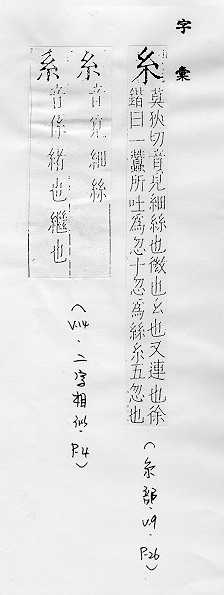 字彙
糸 莫狄切音覓細絲也微也幺也又連也徐
鍇曰一蠶所吐為忽十忽為絲糸五忽也
（糸部．V.9．P.26）
糸 音覓細絲
系 音係緒也繼也
（V.14．二字相似．P.4）